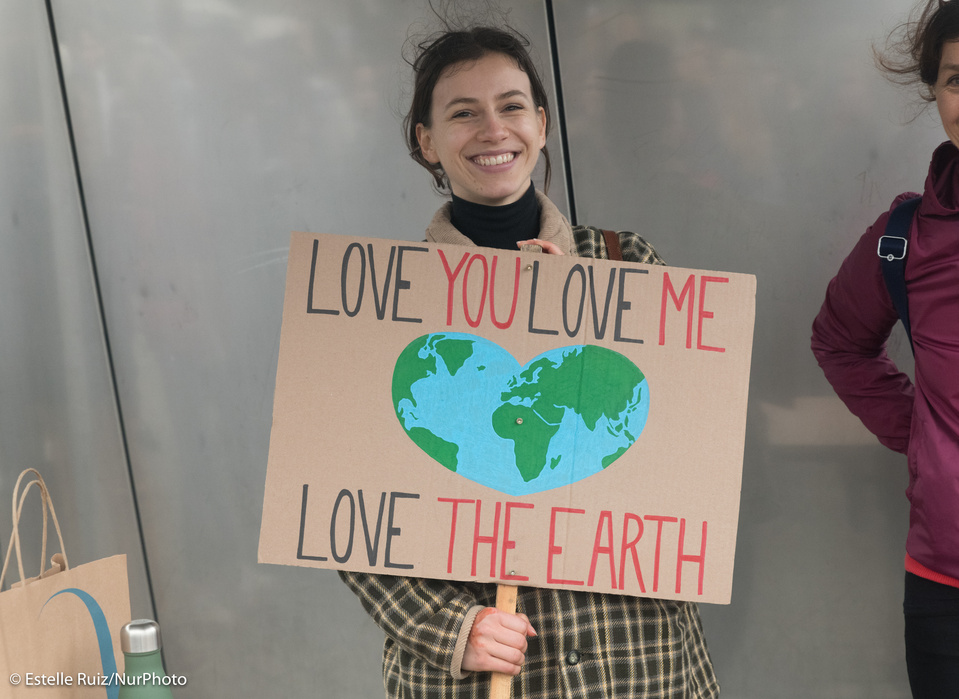 LOVE YOU LOVE ME
LOVE THE EARTH
© Estelle Ruiz/NurPhoto